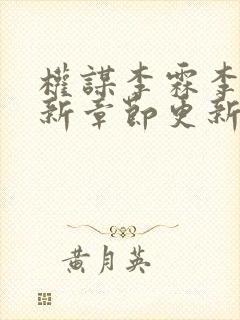 權謀李霖李
新章節更新
黃月英